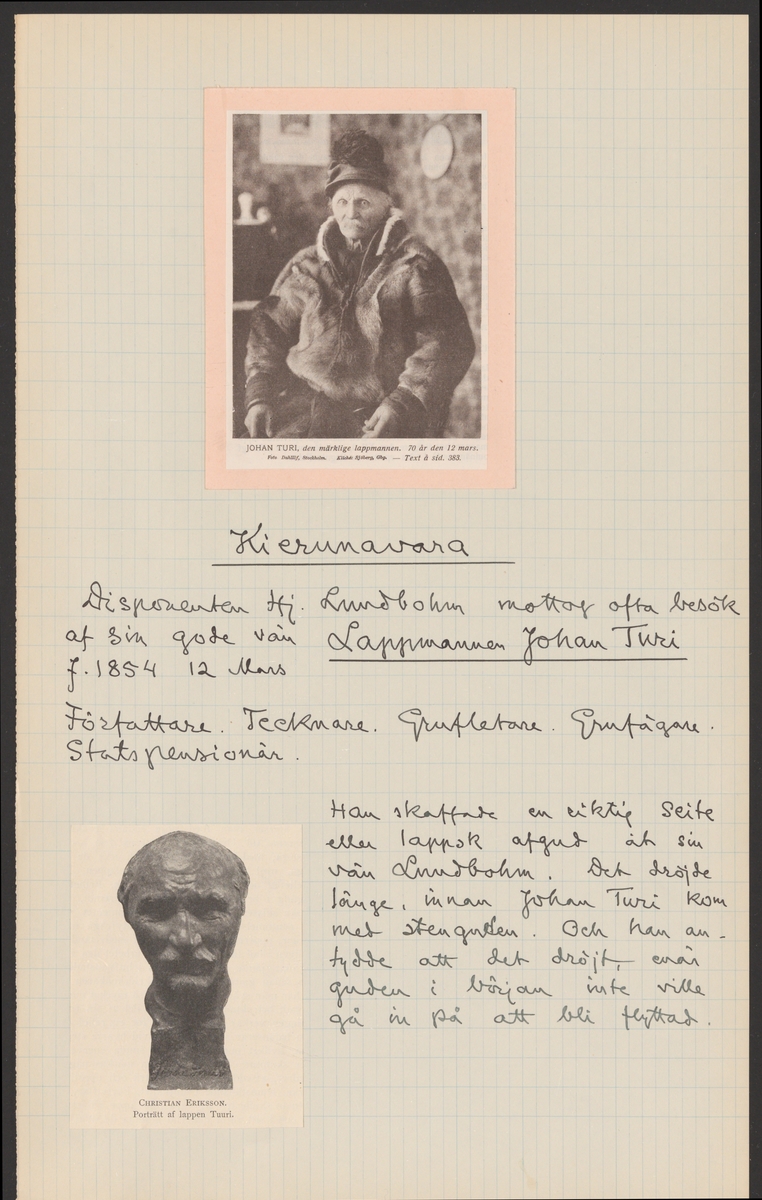 JOHAN TURI, den märklige lappmannen. 70 år den 12 mars.
Foto Dahllöf, Stockholm. Kliché: Sjöberg, Gbg. — Text å sid. 383.
Kierunavara
Disponenten Hj. Lundbohm mottog ofta besök
af sin gode vän Lappmannen Johan Turi
f. 1854 12 Mars
Författare. Tecknare. Grufletare. Grufägare.
Statspensionär.
Han skaffade en riktig Seite
eller lappsk afgud åt sin
vän Lundbohm. Det dröjde
länge, innan Johan Turi kom
med stenguden. Och han an-
tydde att det dröjt, enär
guden i början inte ville
gå in på att bli flyttad.
CHRISTIAN ERIKSSON.
Porträtt af lappen Tuuri.